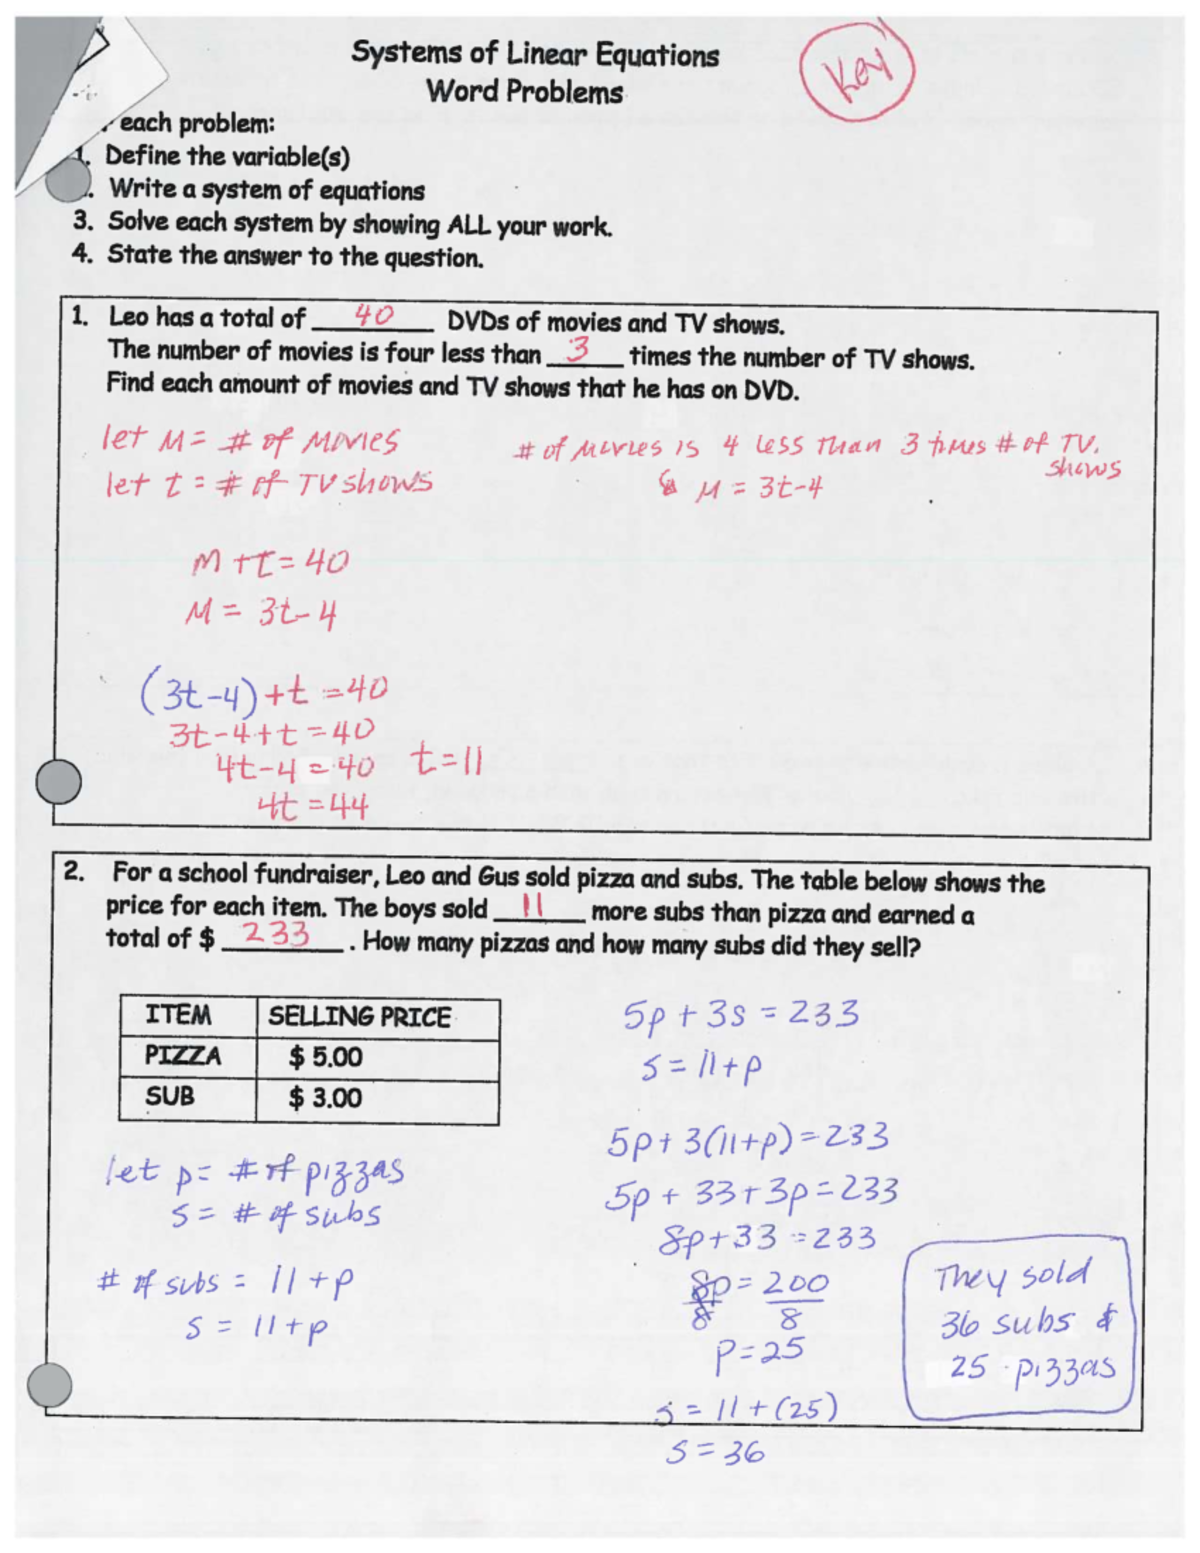 Systems of Linear Equations
Key
Word Problems
each problem:
1. Define the variable(s)
. Write a system of equations
3. Solve each system by showing ALL your work.
4. State the answer to the question.
1. Leo has a total of 40 DVDs of movies and TV shows.
The number of movies is four less than 3 times the number of TV shows.
Find each amount of movies and TV shows that he has on DVD.
let M = # of Movies
# of Movies is 4 less than 3 times # of TV.
shows
let t = # of TV shows
M = 3t-4
M + t = 40
M = 3t-4
(3t-4)+t = 40
3t-4+t = 40
4t-4 = 40 t=11
4t = 44
2. For a school fundraiser, Leo and Gus sold pizza and subs. The table below shows the
price for each item. The boys sold 11 more subs than pizza and earned a
total of $ 233. How many pizzas and how many subs did they sell?
ITEM SELLING PRICE
PIZZA $ 5.00
SUB $ 3.00
5p + 3s = 233
s = 11+p
5p+ 3(11+p)=233
let p= # of pizzas
5p + 33+3p=233
s= # of subs
8p+33 =233
# of subs = 11+p
8p = 200
8 8
s = 11+p
p=25
They sold
36 subs &
25 pizzas
s = 11+(25)
s = 36